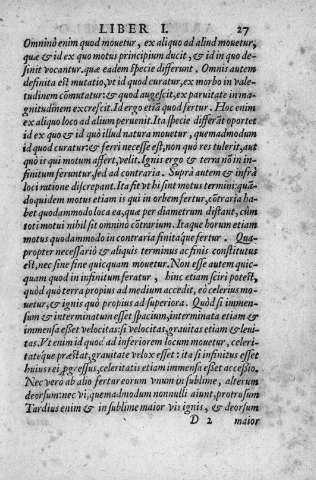 LIBER I. 27
Omnino enim quod mouetur, ex aliquo ad aliud mouetur,
quæ & id ex quo motus principium ducit, & id in quo de-
sinit vocantur. quæ eadem specie differunt. Omnis autem
definita est mutatio, vt id quod curatur, ex morbo in vale-
tudinem cōmutatur: & quod augescit, ex paruitate in ma-
gnitudinem excrescit. Id ergo etiā quod fertur. Hoc enim
ex aliquo loco ad alium peruenit. Ita specie differāt oportet
id ex quo & id quò illud natura mouetur, quemadmodum
id quod curatur: & ferri necesse est, non quò res tulerit, aut
quò is qui motum affert, velit. Ignis ergo & terra nō in in-
finitum feruntur, sed ad contraria. Suprà autem & infrà
loci ratione discrepant. Ita fit vt hi sint motus termini: quā-
doquidem motus etiam is qui in orbem fertur, cōtraria ha-
bet quodammodo loca ea, quæ per diametrum distant, cùm
toti motui nihil sit omnino cōtrarium. Itaque horum etiam
motus quodammodo in contraria finitaque fertur. Qua-
propter necessariò & aliquis terminus ac finis constitutus
est, nec sine fine quicquam mouetur. Non esse autem quic-
quam quod in infinitum feratur, hinc etiam sciri potest,
quòd quò terra propius ad medium accedit, eò celerius mo-
uetur, & ignis quò propius ad superiora. Quòd si immen-
sum & interminatum esset spacium, interminata etiam &
immensa esset velocitas: si velocitas, grauitas etiam & leui-
tas. Vt enim id quod ad inferiorem locum mouetur, celeri-
tateque præstat, grauitate velox esset: ita si infinitus esset
huius rei progressus, celeritatis etiam immensa esset accessio.
Nec verò ab alio fertur eorum vnum in sublime, alterum
deorsum: nec vi, quemadmodum nonnulli aiunt, protrusum
Tardius enim & in sublime maior vis ignis, & deorsum
D 2 maior